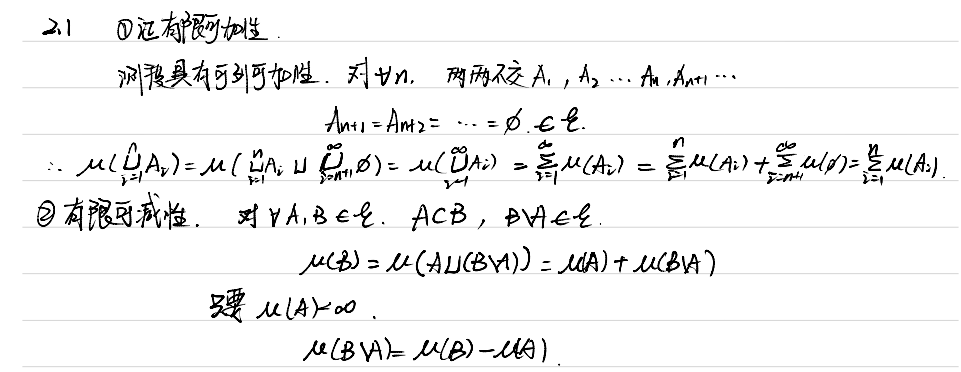 2.1 ①证有限可加性.
测度具有可列可加性. 对∀n. 两两不交 A₁, A₂ … Aₙ, Aₙ₊₁ …
Aₙ₊₁ = Aₙ₊₂ = … = ∅. ∈ ℰ.
∴ μ(⋃ᵢ₌₁ⁿ Aᵢ) = μ(⨆ᵢ₌₁ⁿ Aᵢ ⊔ ⨆ᵢ₌ₙ₊₁^∞ ∅) = μ(⨆ᵢ₌₁^∞ Aᵢ) = ∑ᵢ₌₁^∞ μ(Aᵢ) = ∑ᵢ₌₁ⁿ μ(Aᵢ) + ∑ᵢ₌ₙ₊₁^∞ μ(∅) = ∑ᵢ₌₁ⁿ μ(Aᵢ).
② 有限可减性. 对∀A,B ∈ ℰ. A⊂B, B\A ∈ ℰ.
μ(B) = μ(A⊔(B\A)) = μ(A) + μ(B\A)
只要 μ(A)<∞.
μ(B\A) = μ(B) − μ(A).